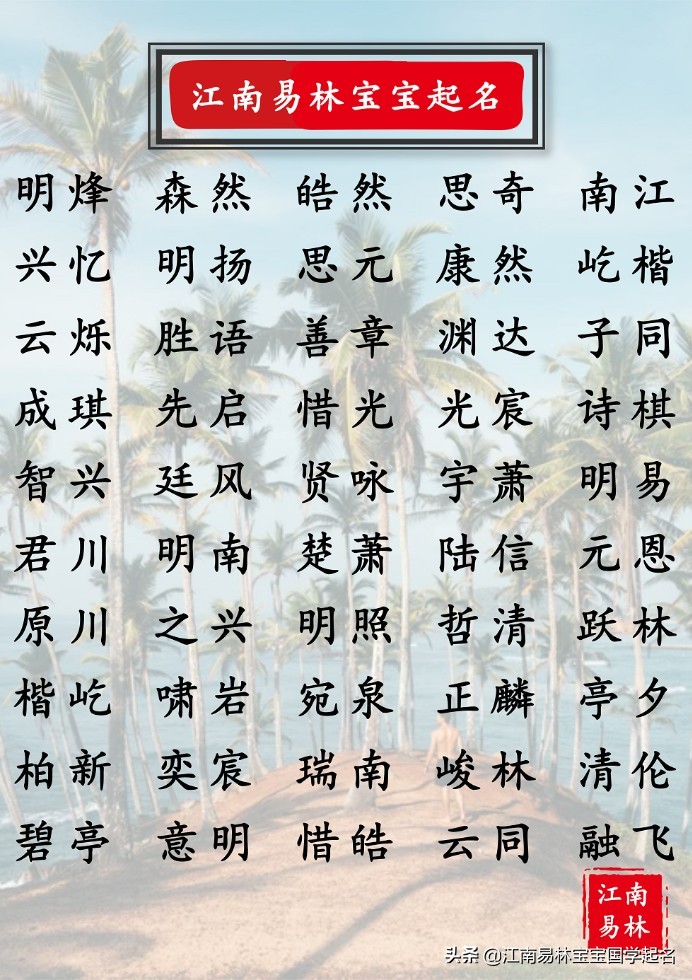 江南易林宝宝起名
明烽 森然 皓然 思奇 南江
兴忆 明扬 思元 康然 屹楷
云烁 胜语 善章 渊达 子同
成琪 先启 惜光 光宸 诗棋
智兴 廷风 贤咏 宇萧 明易
君川 明南 楚萧 陆信 元恩
原川 之兴 明照 哲清 跃林
楷屹 啸岩 宛泉 正麟 亭夕
柏新 奕宸 瑞南 峻林 清伦
碧亭 意明 惜皓 云同 融飞
江南
易林
头条 @江南易林宝宝国学起名